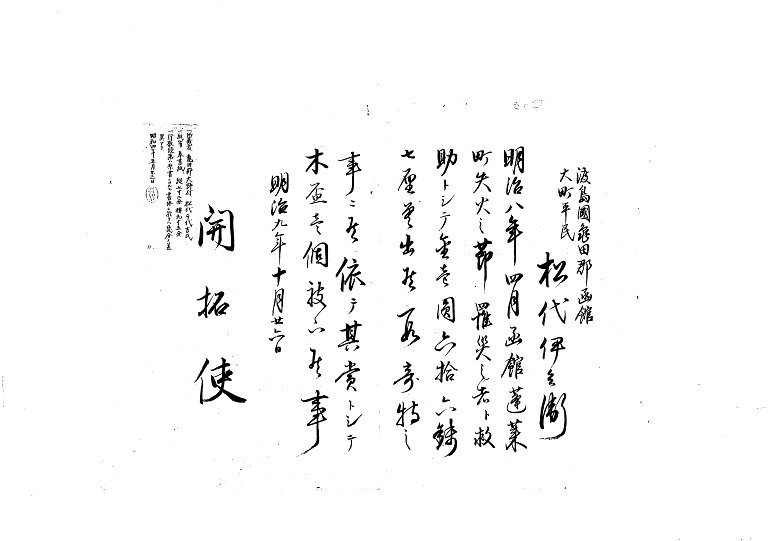 渡島國亀田郡函館
大町平民
松代伊兵衛
明治八年四月函館蓬萊
町失火之節罹災之者ト救
助トシテ金壱圓六拾六銭
七厘差出候段奇特之
事ニ候依テ其賞トシテ
木盃壱個被下候事
明治九年十月廿六日
開拓使